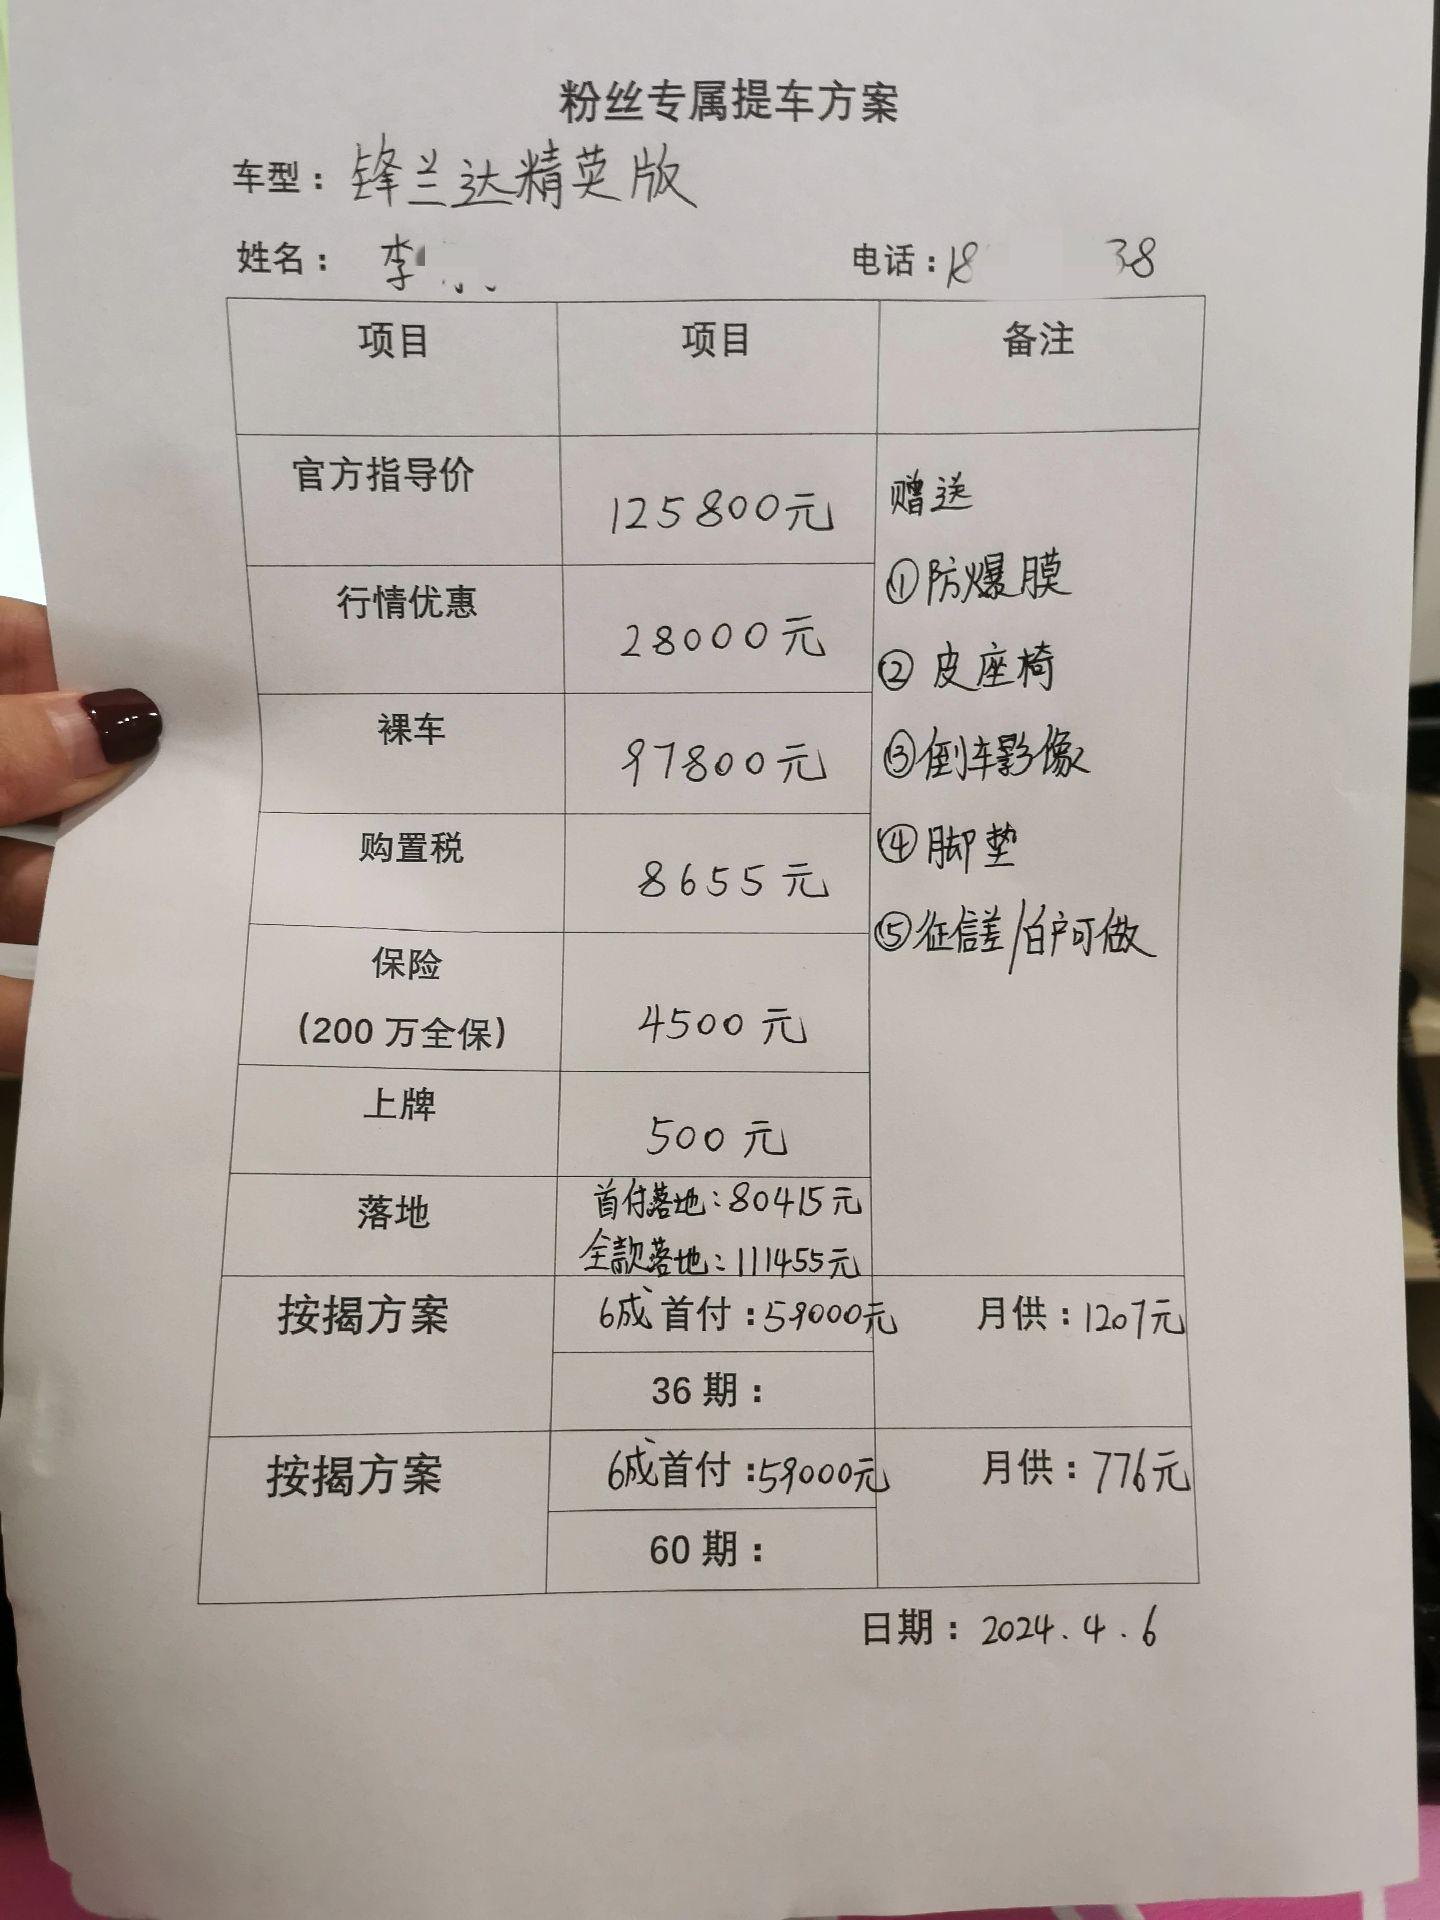 粉丝专属提车方案
车型：锋兰达精英版
姓名：李
电话：18 38
项目 项目 备注
官方指导价 125800元
行情优惠 28000元
裸车 97800元
购置税 8655元
保险
（200万全保） 4500元
上牌 500元
落地 首付落地：80415元
全款落地：111455元
赠送
①防爆膜
②皮座椅
③倒车影像
④脚垫
⑤征信差/白户可做
按揭方案 6成首付：59000元 月供：1207元
36期：
按揭方案 6成首付：59000元 月供：776元
60期：
日期：2024.4.6